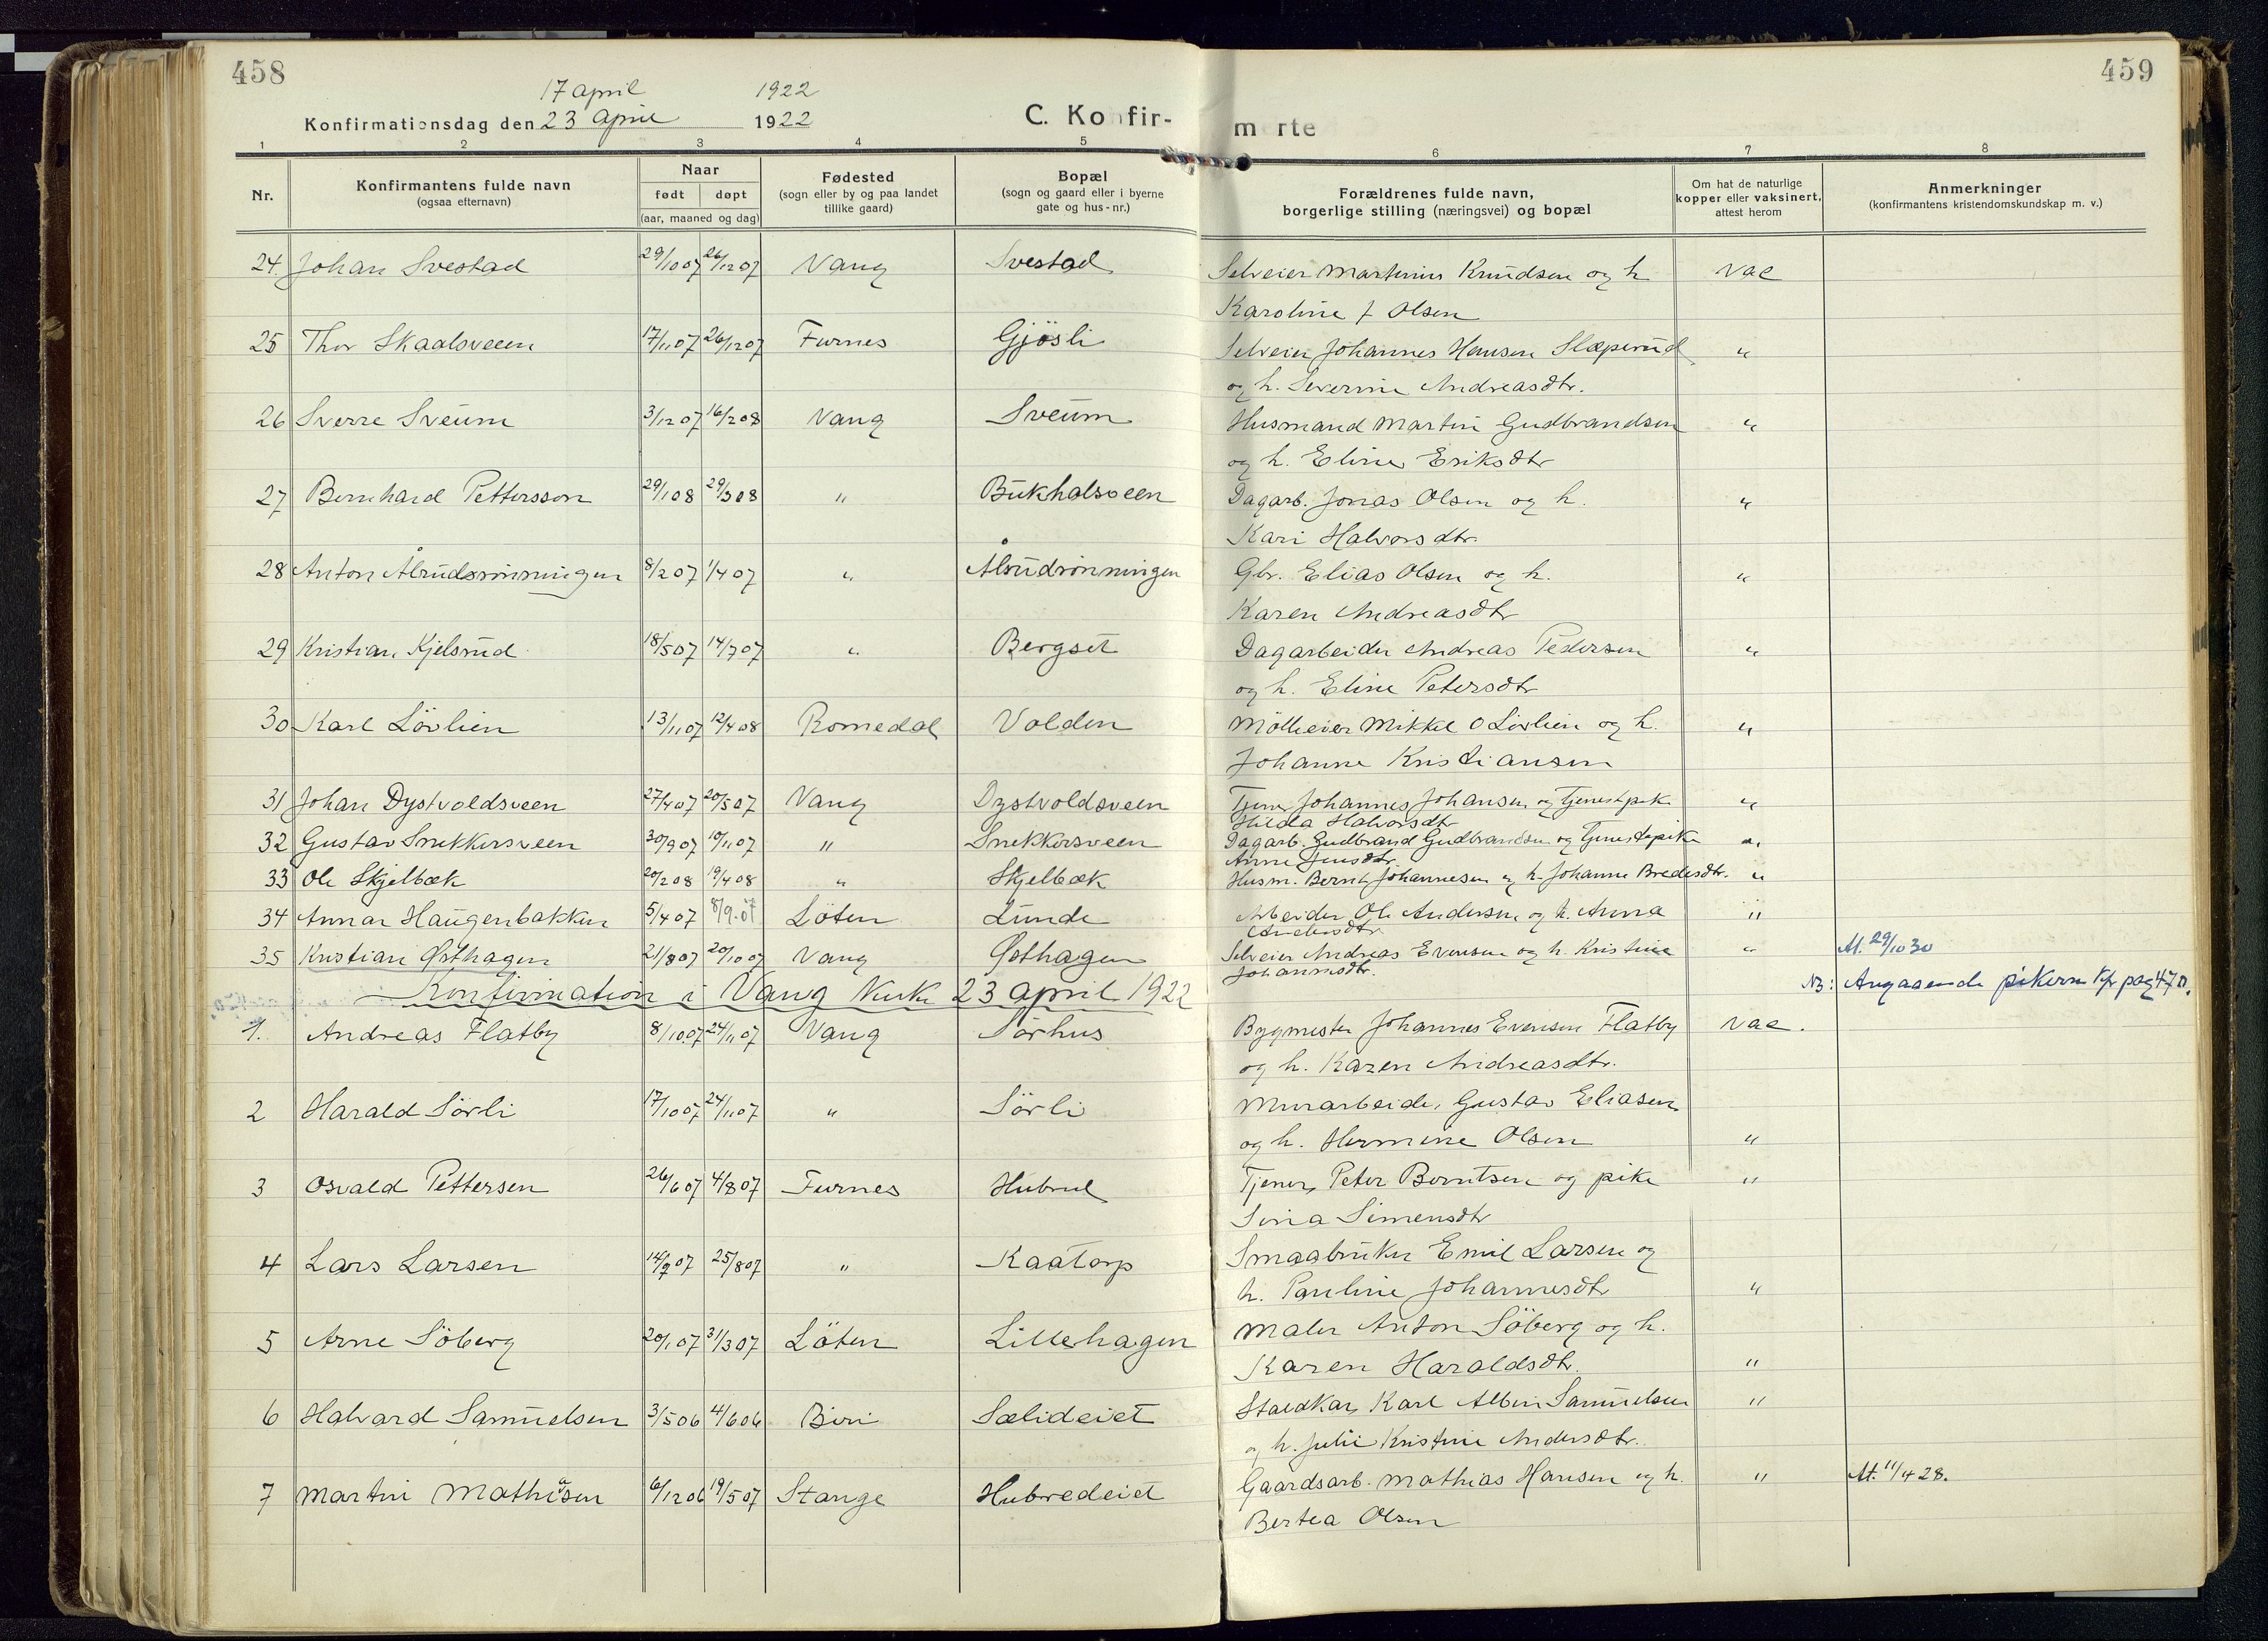 458
459
17 april 1922
Konfirmationsdag den 23 april 1922
C. Konfir-
merte
1 2 3 4 5 6 7 8
Nr.
Konfirmantens fulde navn
(ogsaa efternavn)
Naar
født døpt
(aar, maaned og dag)
Fødested
(sogn eller by og paa landet
tillike gaard)
Bopæl
(sogn og gaard eller i byerne
gate og hus-nr.)
Forældrenes fulde navn,
borgerlige stilling (næringsvei) og bopæl
Om hat de naturlige
kopper eller vaksinert,
attest herom
Anmerkninger
(konfirmantens kristendomskundskap m. v.)
24. Johan Svestad 29/10 07 26/12 07 Vang Svestad Selveier Martinius Knudsen og h Vac
Karoline f Olsen
25 Thor Skaalsveen 17/11 07 26/12 07 Furnes Gjøsli Selveier Johannes Hansen Slæperud "
og h. Severine Andreasdtr.
26 Sverre Sveum 3/12 07 16/2 08 Vang Sveum Husmand Martin Gudbrandsen "
og h. Eline Eriksdtr
27 Bernhard Pettersson 29/1 08 29/3 08 " Bukhalsveen Dagarb. Jonas Olsen og h. "
Kari Halvorsdtr.
28 Anton Ålsrudsrønningen 8/2 07 1/4 07 " Ålsrudrønningen Gbr. Elias Olsen og h. "
Karen Andreasdtr
29 Kristian Kjelsrud 18/5 07 14/7 07 " Bergset Dagarbeider Andreas Pedersen "
og h. Eline Petersdtr
30 Karl Lövlien 13/11 07 12/4 08 Romedal Volden Mölleeier Mikkel O Lövlien og h. "
Johanne Kristiansen
31 Johan Dystvoldsveen 27/4 07 20/5 07 Vang Dystvoldsveen Tjener Johannes Johansen og tjenestpike "
Hilda Halvorsdtr
32 Gustav Snekkersveen 30/9 07 10/11 07 " Snekkersveen Dagarb. Gudbrand Gudbrandsen og tjenestepike "
Anne Jensdtr.
33 Ole Skjelbæk 20/2 08 19/4 08 " Skjelbæk Husm. Bernt Johannesen og h. Johanne Bredesdtr. "
34 Annar Haugenbakken 5/4 07 8/9.07 Löten Lunde Arbeider Ole Andersen og h. Anna "
Andersdtr.
35 Kristian Østhagen 21/8 07 20/10 07 Vang Østhagen Selveier Andreas Evensen og h. Kristine " At. 29/10 30
Johannesdtr.
Konfirmation i Vang kirke 23 april 1922 NB: Angaaende pikerne kfr pag 470.
1. Andreas Flatby 8/10.07 24/11 07 Vang Sørhus Bygmester Johannes Evensen Flatby Vac.
og h. Karen Andreasdtr.
2 Harald Sörli 17/10 07 24/11 07 " Sörli Murarbeider Gustav Eliasen
og h. Hermine Olsen "
3 Osvald Pettersen 26/6 07 4/8 07 Furnes Hubred Tjener Peter Berntsen og pike "
Sina Simensdtr
4 Lars Larsen 14/7 07 25/8 07 " Kaatorp Smaabruker Emil Larsen og
h. Pauline Johannesdtr "
5 Arne Söberg 20/1 07 31/3 07 Löten Lillehagen Maler Anton Söberg og h.
Karen Haraldsdtr. "
6 Halvard Samuelsen 3/5 06 4/6 06 Biri Sælideiet Staldkar Karl Albin Samuelsen "
og h. Julie Kristine Andersdtr.
7 Martin Mathisen 6/12 06 19/5 07 Stange Hubredeiet Gaardsarb. Mathias Hansen og h. " At. 11/4 28.
Bertea Olsen